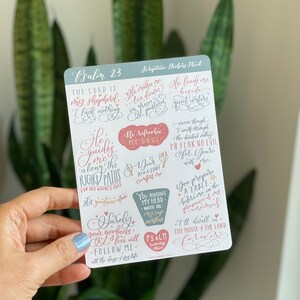 Psalm 23
Scripture Stickers Sheet
THE LORD IS
my shepherd,
I lack nothing
He makes me
lie down in
green pastures
He leads me
beside
quiet waters
He Refreshes
MY SOUL
He
guides
me
along the
RIGHT PATHS
FOR HIS NAME'S SAKE
even though
I walk
through
the darkest valley
I'll FEAR NO EVIL
for You're
with me
Your
rod & Your
staff
comfort me
You prepare
A TABLE
before me
in the
presence
of my
enemies
YOU ANOINT
MY HEAD
WITH OIL
my cup
overflows
Surely
your goodness
& love will
FOLLOW ME
all the days of my life
I'll dwell in
THE HOUSE OF THE LORD
Forever
PSALM